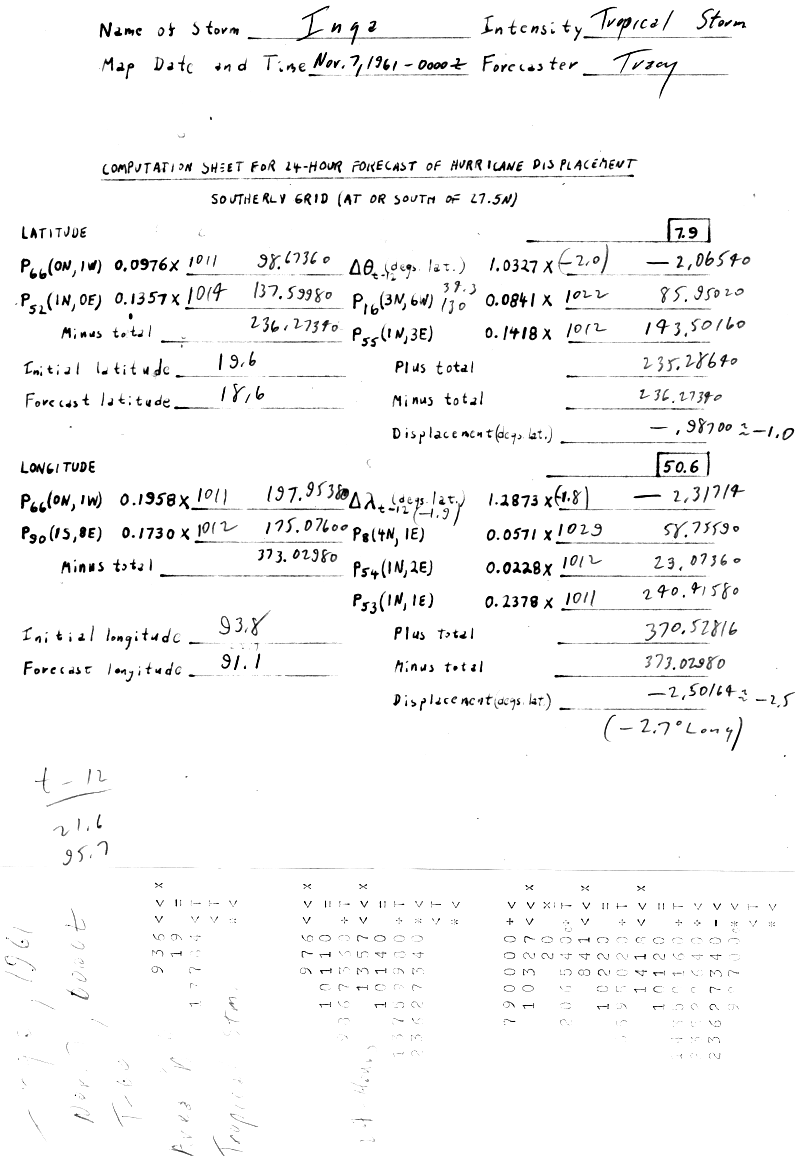 Name of Storm Inga Intensity Tropical Storm
Map Date and Time Nov. 7, 1961 - 0000 Z Forecaster Tracy
COMPUTATION SHEET FOR 24-HOUR FORECAST OF HURRICANE DISPLACEMENT
SOUTHERLY GRID (AT OR SOUTH OF 27.5N)
LATITUDE 7.9
P66(0N, 1W) 0.0976 X 1011 98.67360 Δθt-12 (degs. lat.) 1.0327 X (-2.0) - 2.06540
P52(1N, 0E) 0.1357 X 1014 137.59980 P16(3N, 6W) 0.0841 X 1022 85.95020
Minus total 236.27340 P55(1N, 3E) 0.1418 X 1012 143.50160
Initial latitude 19.6 Plus total 235.28640
Forecast latitude 18.6 Minus total 236.27340
Displacement (degs. lat.) -.98700 ≈ -1.0
LONGITUDE 50.6
P66(0N, 1W) 0.1958 X 1011 197.95380 Δλt-12 (degs. lat.) 1.2873 X (-1.8) - 2.31714
(-1.9)
P90(1S, 8E) 0.1730 X 1012 175.07600 P8(4N, 1E) 0.0571 X 1029 58.75590
Minus total 373.02980 P54(1N, 2E) 0.0228 X 1012 23.07360
P53(1N, 1E) 0.2378 X 1011 240.41580
Initial longitude 93.8 Plus total 370.52816
Forecast longitude 91.1 Minus total 373.02980
Displacement (degs. lat.) -2.50164 ≈ -2.5
(-2.7° Long)
t - 12
21.6
95.7
1961
Nov. 7,
Tropical Stm.
936
19
976
10110
1357
10140
23627340
790000
10327
20
206540
841
10220
1418
10120
23627340